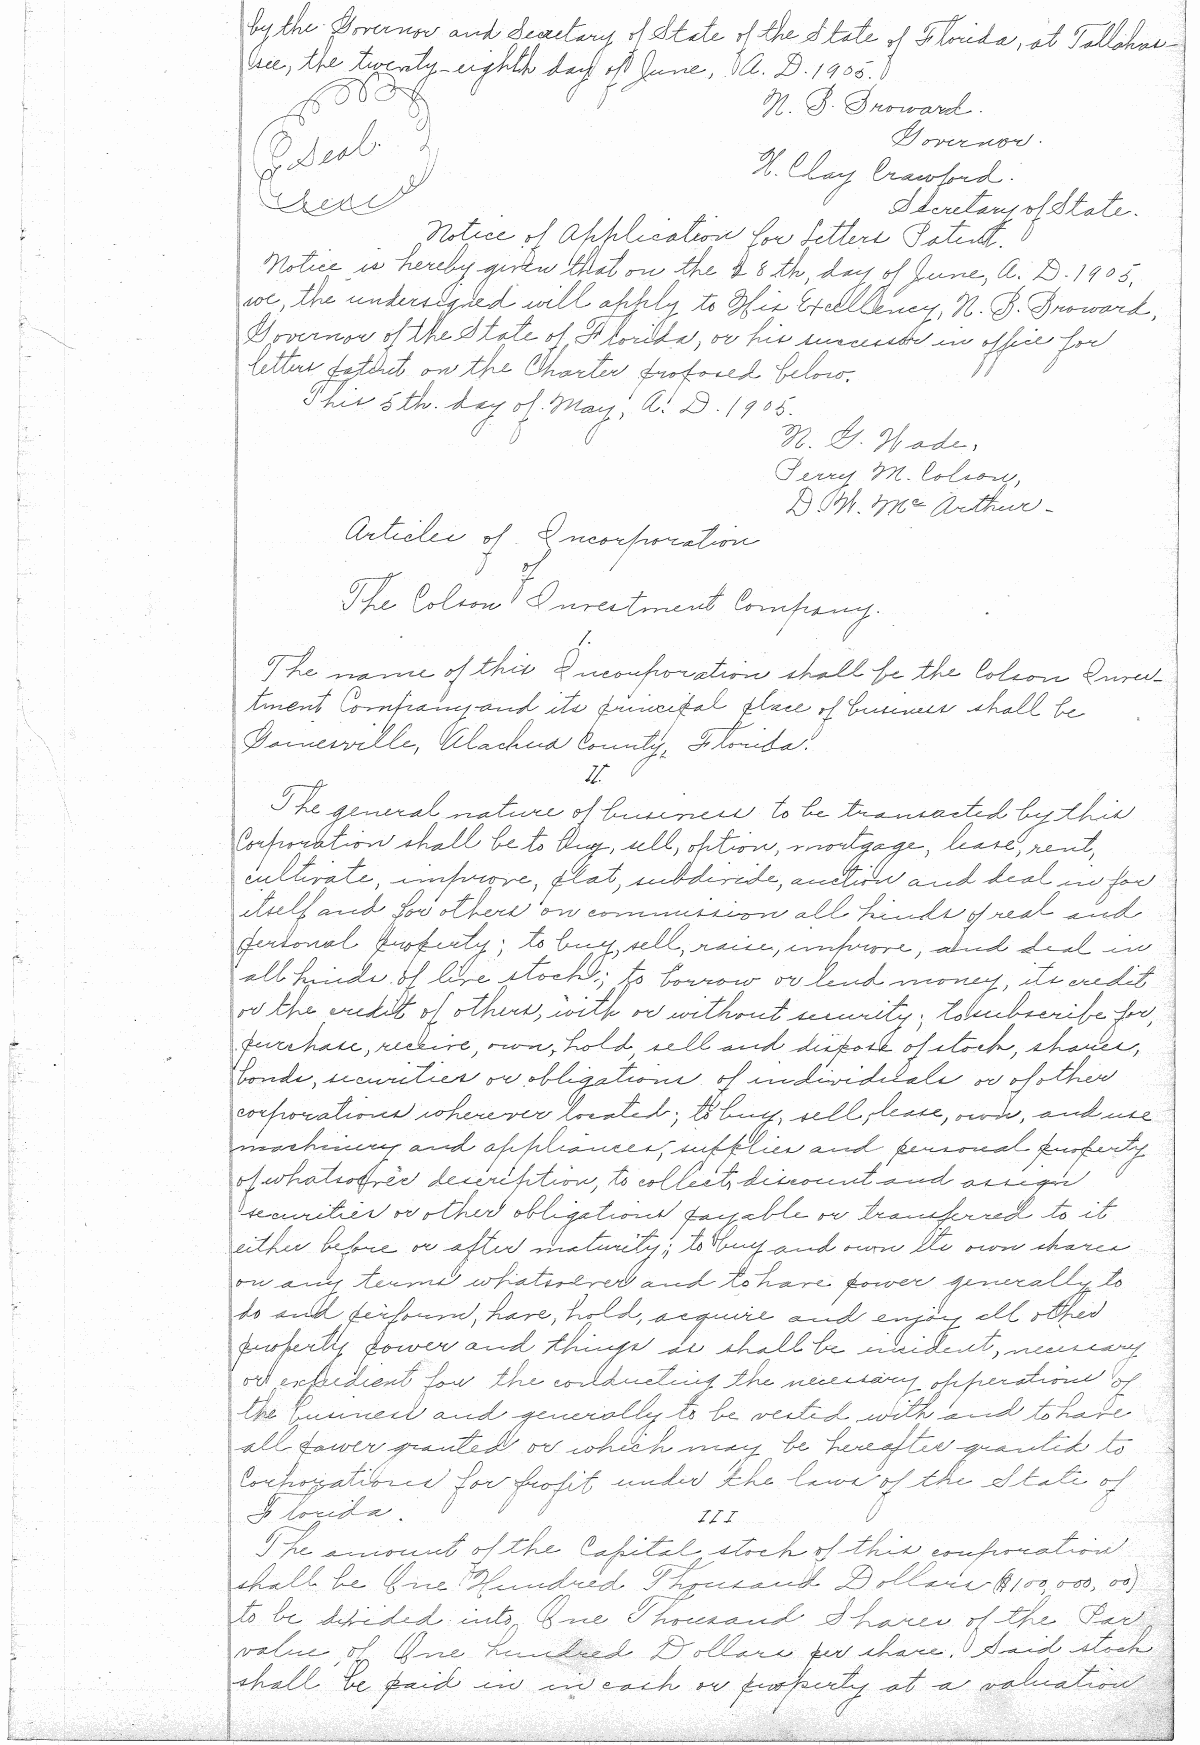 by the Governor and Secretary of State of the State of Florida, at Tallahas-
see, the twenty-eighth day of June, A. D. 1905.
N. B. Broward.
Governor.
Seal.
H. Clay Crawford.
Secretary of State.
Notice of Application for Letters Patent.
Notice is hereby given that on the 28th, day of June, A. D. 1905,
we, the undersigned will apply to His Excellency, N. B. Broward,
Governor of the State of Florida, or his successor in office for
letters patent on the Charter proposed below.
This 5th. day of May, A. D. 1905.
N. G. Wade,
Perry M. Colson,
D. W. McArthur-
Articles of Incorporation
of
The Colson Investment Company.
I.
The name of this Incorporation shall be the Colson Inves-
tment Company and its principal place of business shall be
Gainesville, Alachua County, Florida.
II.
The general nature of business to be transacted by this
Corporation shall be to buy, sell, option, mortgage, lease, rent,
cultivate, improve, plat, subdivide, auction and deal in for
itself and for others on commission all kinds of real and
personal property; to buy, sell, raise, improve, and deal in
all kinds of live stock; to borrow or lend money, its credit
or the credit of others, with or without security; to subscribe for,
purchase, receive, own, hold, sell and dispose of stock, shares,
bonds, securities or obligations of individuals or of other
corporations wherever located; to buy, sell, lease, own, and use
machinery and appliances, supplies and personal property
of description, to collect, discount and assign
securities or other obligations payable or transferred to it
either before or after maturity; to buy and own its own shares
on any terms whatsoever and to have power generally to
do and perform, have, hold, acquire and enjoy all other
property power and things as shall be insident, necessary
or expedient for the conducting the necessary opperations of
the business and generally to be vested with and to have
all power granted or which may be hereafter granted to
Corporations for profit under the laws of the State of
Florida.
III
The amount of the Capital stock of this corporation
shall be One Hundred Thousand Dollars ($100,000,00)
to be divided into One Thousand Shares of the Par
value of One hundred Dollars per share. Said stock
shall be paid in in cash or property at a valuation